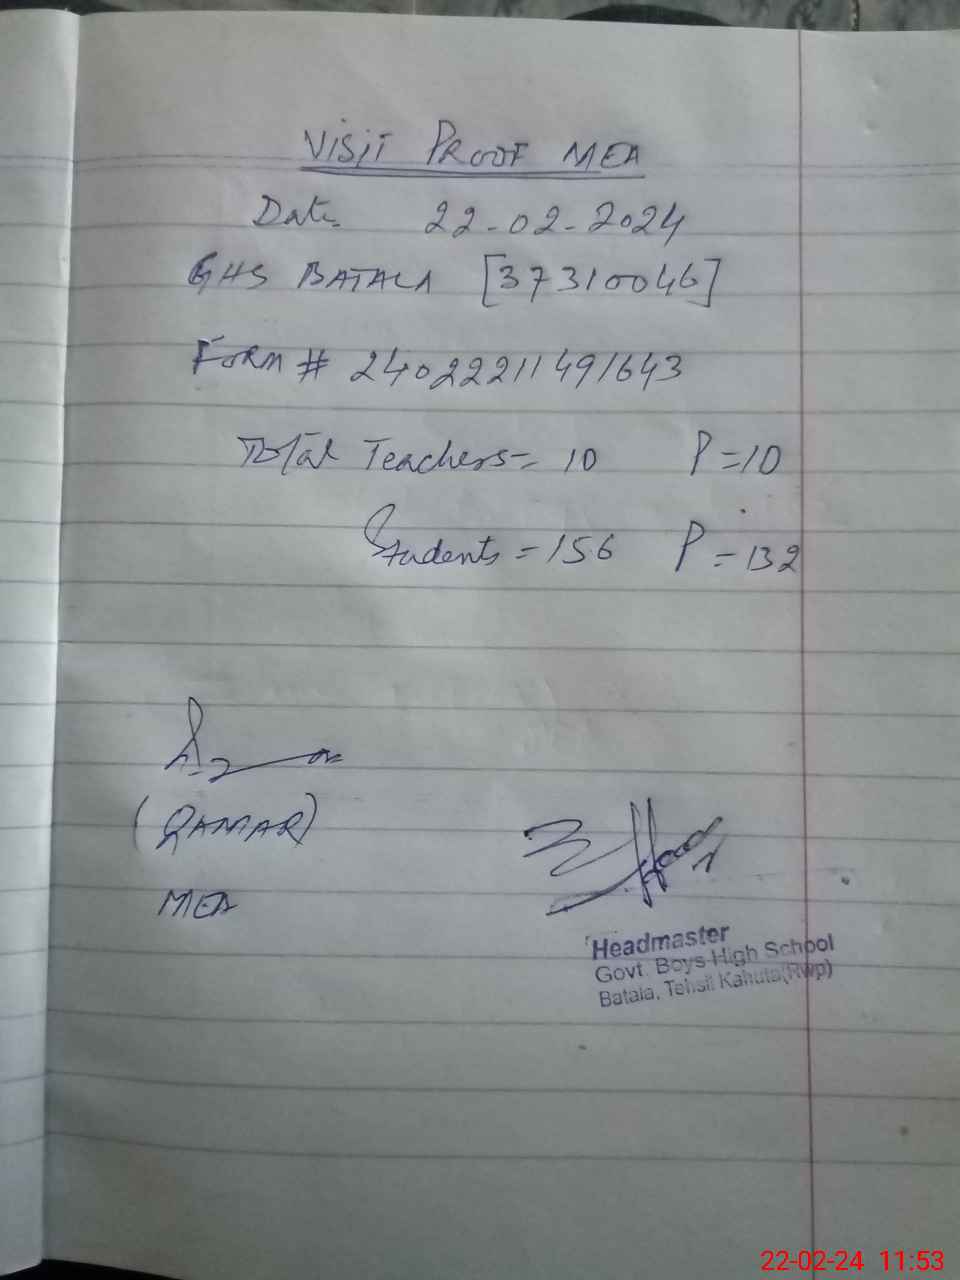 Visit Proof MEA
Date 22-02-2024
GHS BATALA [37310046]
Form # 24022211491643
Total Teachers = 10 P = 10
Students = 156 P = 132
(QAMAR)
MEA
Headmaster
Govt. Boys High School
Batala, Tehsil Kahuta(Rwp)
22-02-24 11:53